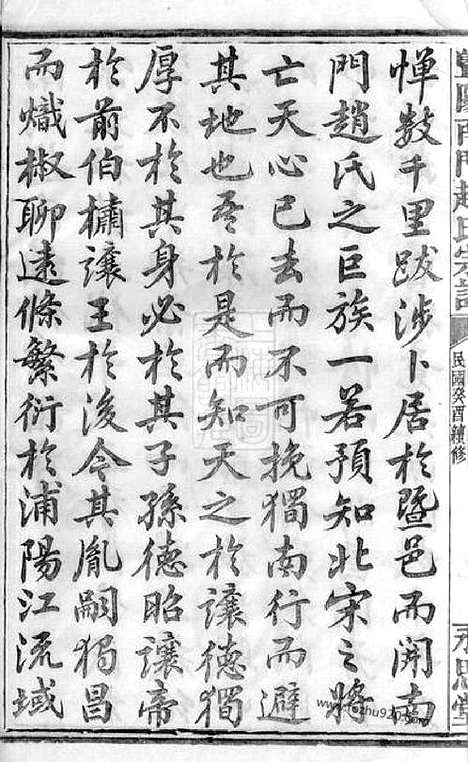 憚數千里跋涉卜居於暨邑而開南
門趙氏之巨族一若預知北宋之將
亡天心已去而不可挽獨南行而避
其地也吾於是而知天之於讓德獨
厚不於其身必於其子孫德昭讓帝
於前伯橚讓王於後今其胤嗣獨昌
而熾椒聊遠條繁衍於浦陽江流域
暨陽南門趙氏宗譜
民國癸酉續修
永思堂